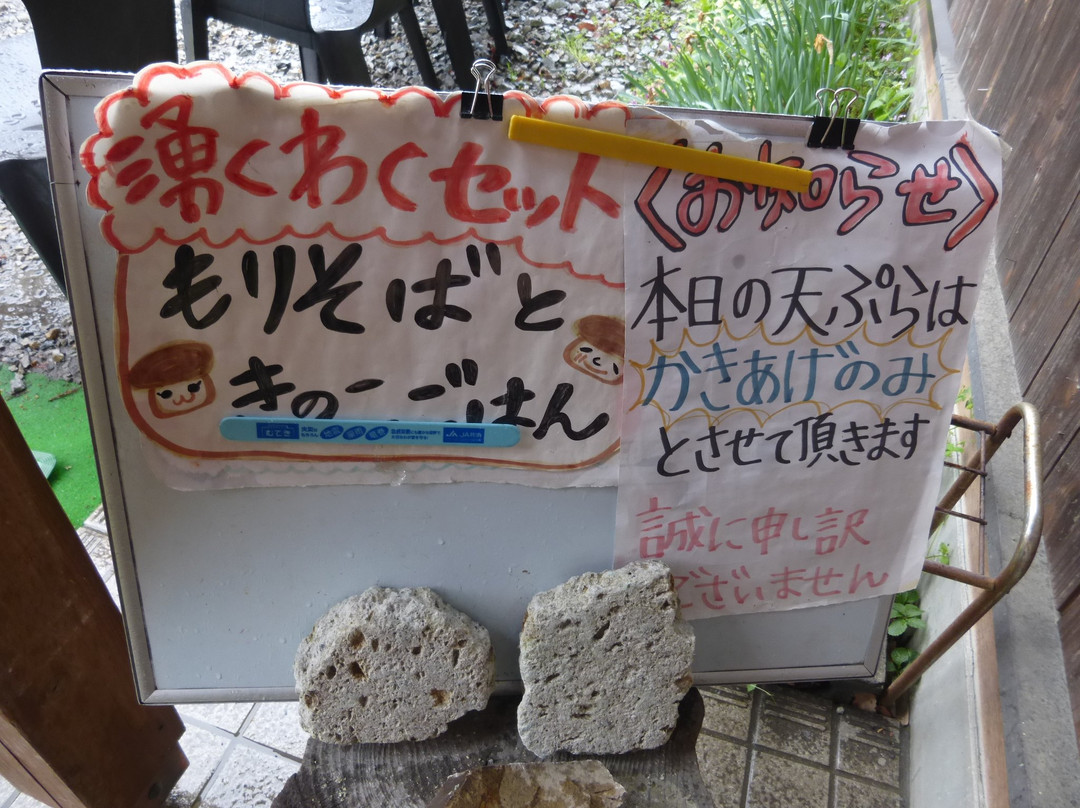 湧くわくセット
もりそばと
きのこごはん
〈お知らせ〉
本日の天ぷらは
かきあげのみ
とさせて頂きます
誠に申し訳
ございません